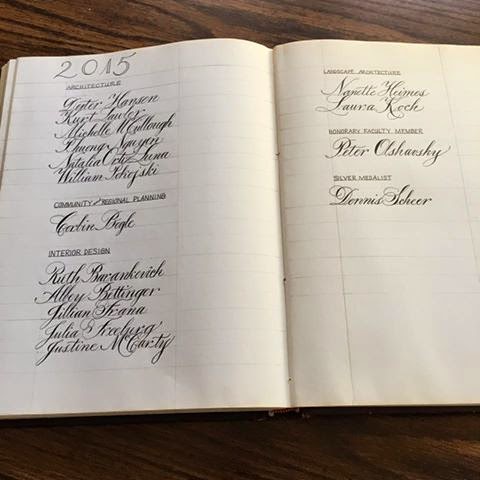 2015
ARCHITECTURE
Dexter Hansen
Kurt Lawler
Michelle McCullough
Phuong Nguyen
Natalia Ortiz Luna
William
COMMUNITY and REGIONAL PLANNING
Corbin Bogle
INTERIOR DESIGN
Ruth Barankevich
Alley Bettinger
Jillian Frana
Julia Freeburg
Justine McCarty
LANDSCAPE ARCHITECTURE
Nanette Heimes
Laura Koch
HONORARY FACULTY MEMBER
Peter Olshavsky
SILVER MEDALIST
Donnis Scheer